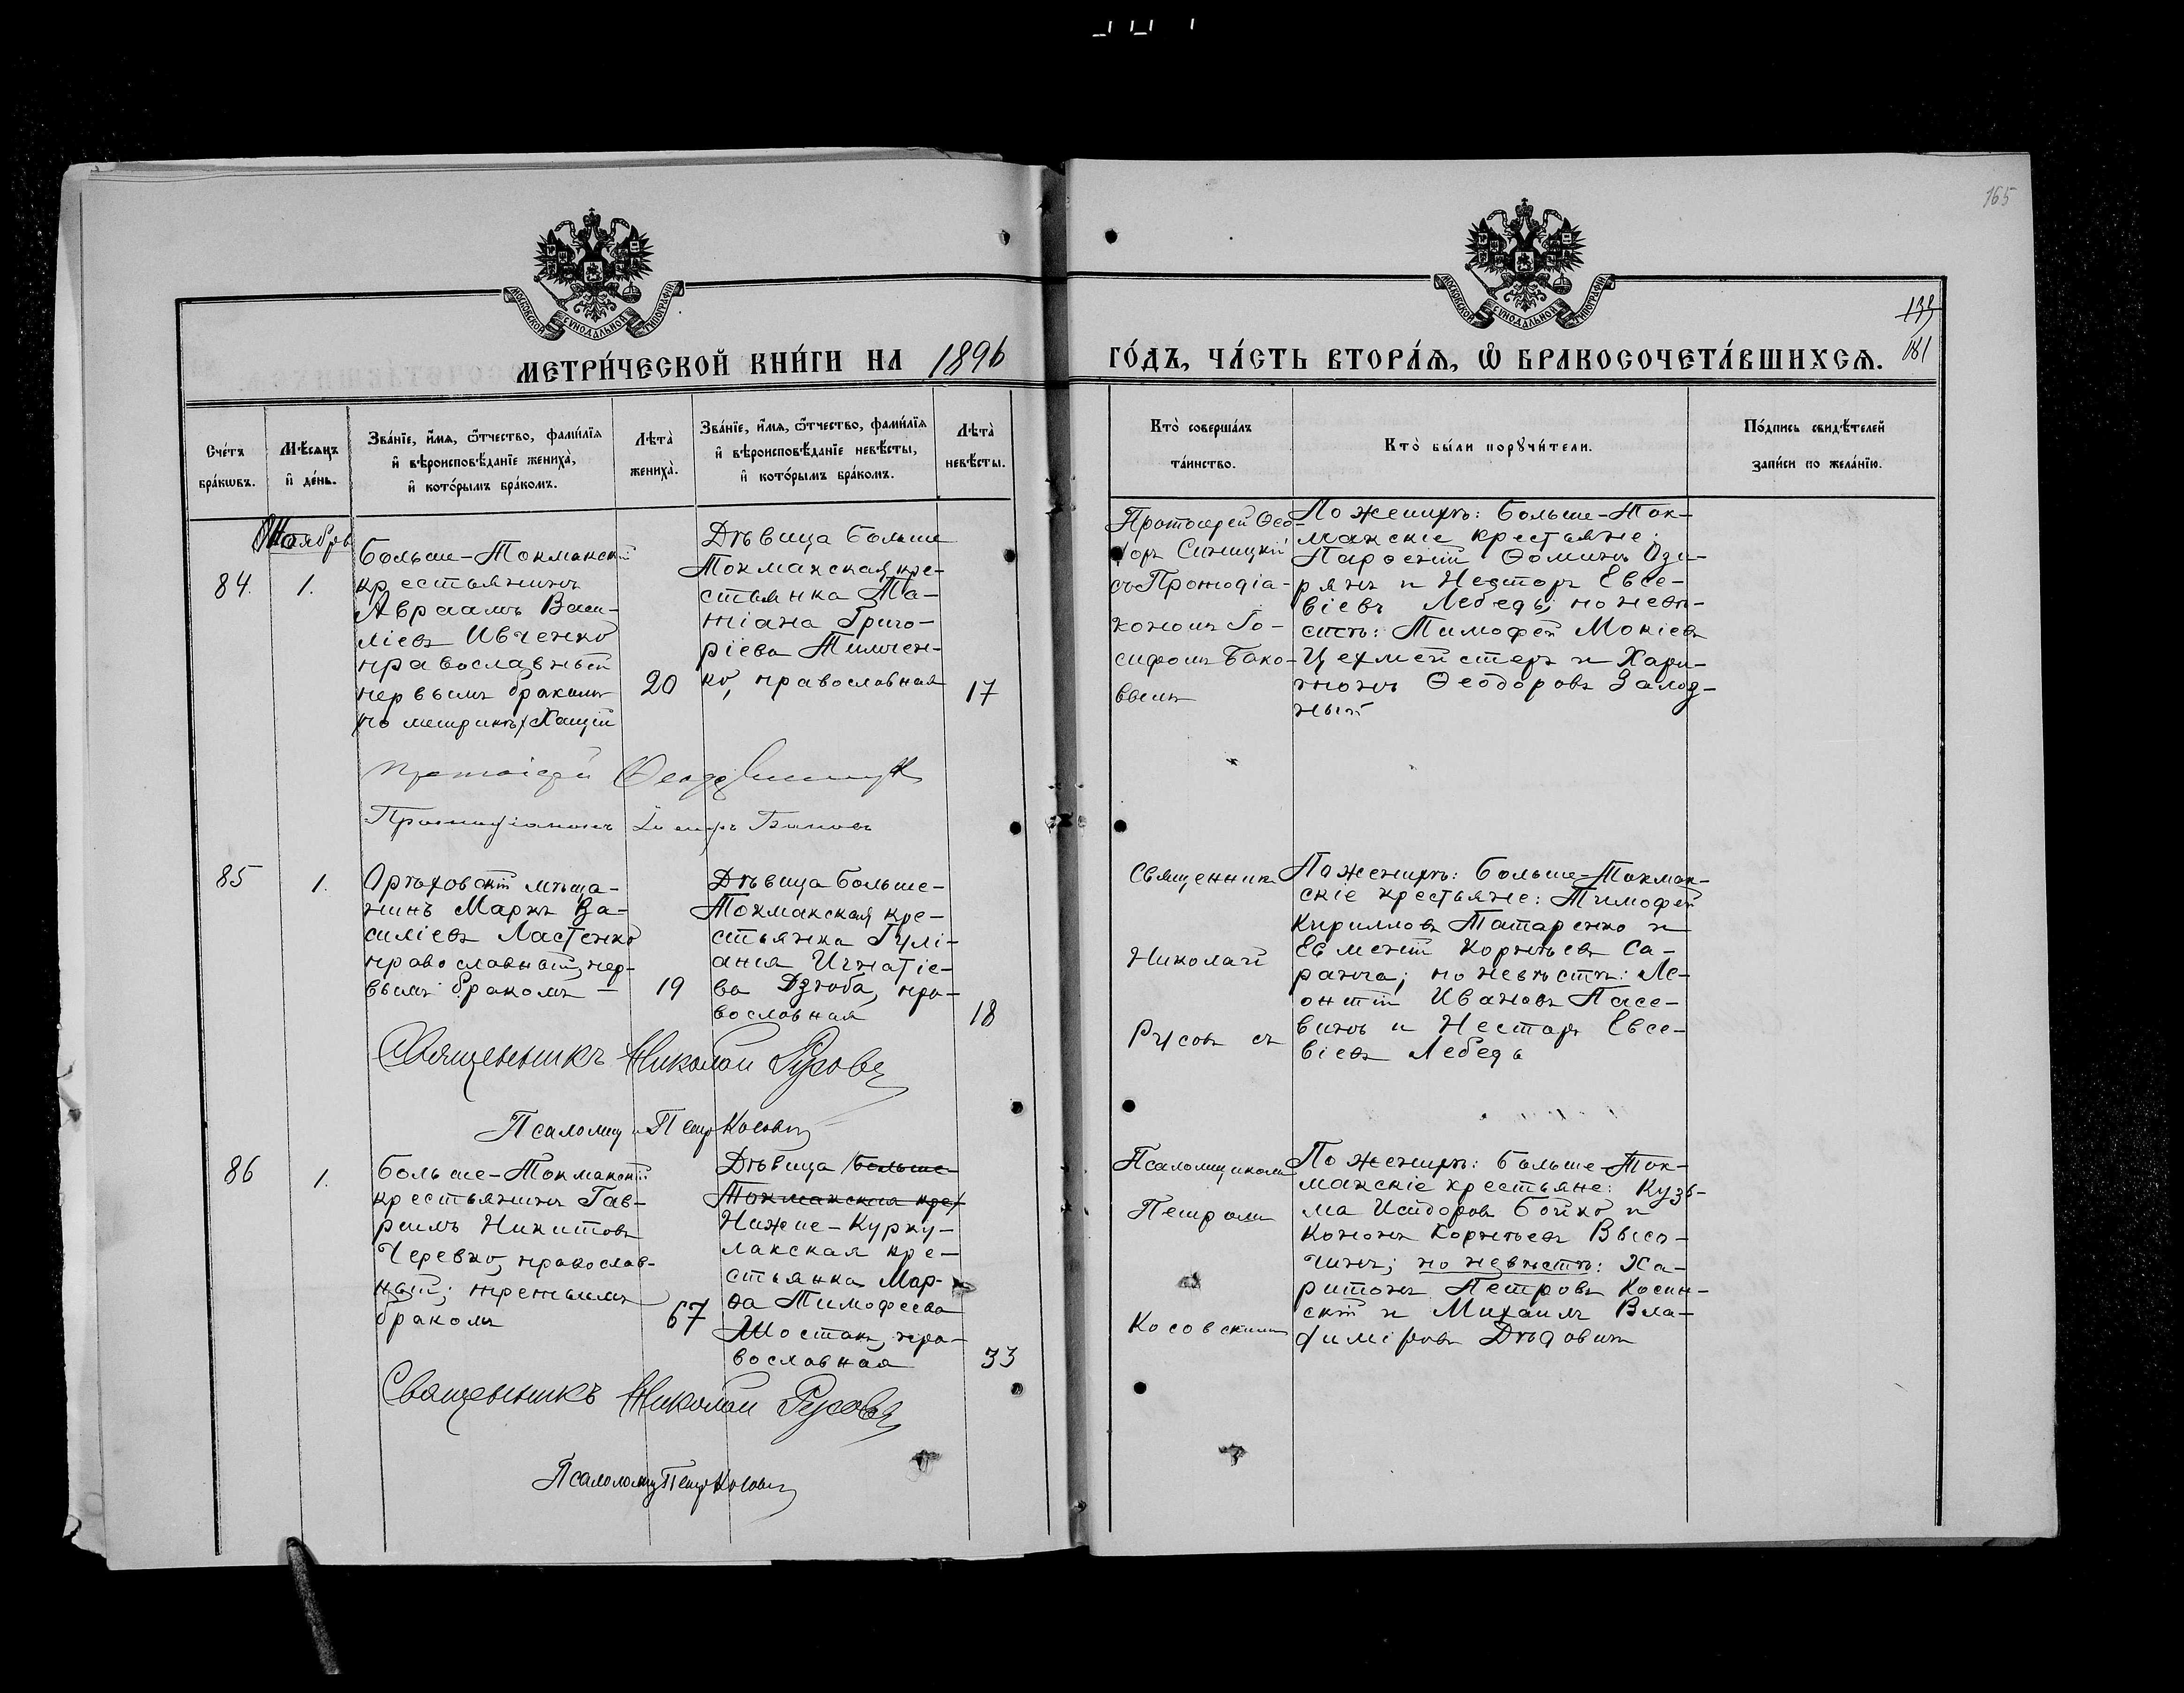 165
МОСКОВСКОЙ СѴНОДАЛЬНОЙ ТИПОГРАФІИ
МОСКОВСКОЙ СѴНОДАЛЬНОЙ ТИПОГРАФІИ
181
МЕТРИ́ЧЕСКОЙ КНИ́ГИ НА 1896
ГО́ДЪ, ЧА́СТЬ ВТОРА́Ѧ, Ѡ҆ БРАКОСОЧЕТА́ВШИХСѦ.
Сче́тъ
бра́кѡвъ.
Мѣ́сѧцъ
и҆ де́нь.
Зва́нїе, и҆́мѧ, ѻ҆́тчество, фами́лїѧ
и҆ вѣроисповѣ́данїе жениха̀,
и҆ кото́рымъ бра́комъ.
Лѣта̀
жениха̀.
Зва́нїе, и҆́мѧ, ѻ҆́тчество, фами́лїѧ
и҆ вѣроисповѣ́данїе невѣ́сты,
и҆ кото́рымъ бра́комъ.
Лѣта̀
невѣ́сты.
Кто̀ соверша́лъ
та́инство.
Кто̀ бы́ли порꙋчи́тели.
По́дпись свидѣ́телей
за́писи по жела́нїю.
Ноябрь
84.
1.
Больше-Токмакскій
крестьянинъ
Авраамъ Васи-
ліевъ Ивченко
православный
первымъ бракомъ
(по метрикѣ) Хацій
20
Дѣвица Больше
Токмакская кре-
стьянка Та-
тіана Григо-
ріева Тимчен-
ко, православная
17
Протоіерей Ѳео-
доръ Синицкій
съ Протодіа-
кономъ Іо-
сифомъ Бако-
вымъ
По женихѣ: Больше-Ток-
макскіе крестьяне:
Парѳеній Ѳоминъ Ози-
рянъ и Несторъ Евсе-
віевъ Лебедь; по невѣ-
стѣ: Тимофей Мокіевъ
Цехмейстеръ и Хари-
тонъ Ѳеодоровъ Залод-
ный
Протоіерей Ѳеодоръ Синицкій
Протодіаконъ Іосифъ Баковъ
85
1.
Орѣховскій мѣща-
нинъ Маркъ Ва-
силіевъ Ластенко
православный, пер-
вымъ бракомъ —
19
Дѣвица Больше-
Токмакская кре-
стьянка Гулі-
анія Игнатіе-
ва Дзюба, пра-
вославная
18
Священникъ
Николай
Русовъ съ
По женихѣ: Больше-Токмак-
скіе крестьяне: Тимофей
Кирилловъ Татаренко и
Евменій Корнѣевъ Са-
ранча; по невѣстѣ: Ле-
онтій Ивановъ Пасе-
винъ и Несторъ Евсе-
віевъ Лебедь
Священникъ Николай Русовъ
Псаломщ. Петръ Косовск
86
1.
Больше-Токмакскій
крестьянинъ Гав-
риилъ Никитовъ
Черевко, православ-
ный; третьимъ
бракомъ
67
Дѣвица Больше-
Токмакская кре
Ниже-Курку-
лакская кре-
стьянка Мар-
ѳа Тимофеева
Шостак, пра-
вославная
33
Псаломщикомъ
Петромъ
Косовскимъ
По женихѣ: Больше-Ток-
макскіе крестьяне: Кузь-
ма Исидоровъ Бойко и
Кононъ Корнѣевъ Высо-
чинъ; по невѣстѣ: Ха-
ритонъ Петровъ Косин-
скій и Михаилъ Вла-
диміровъ Дѣдовичъ
Священникъ Николай Русовъ
Псаломщ Петръ Косовск